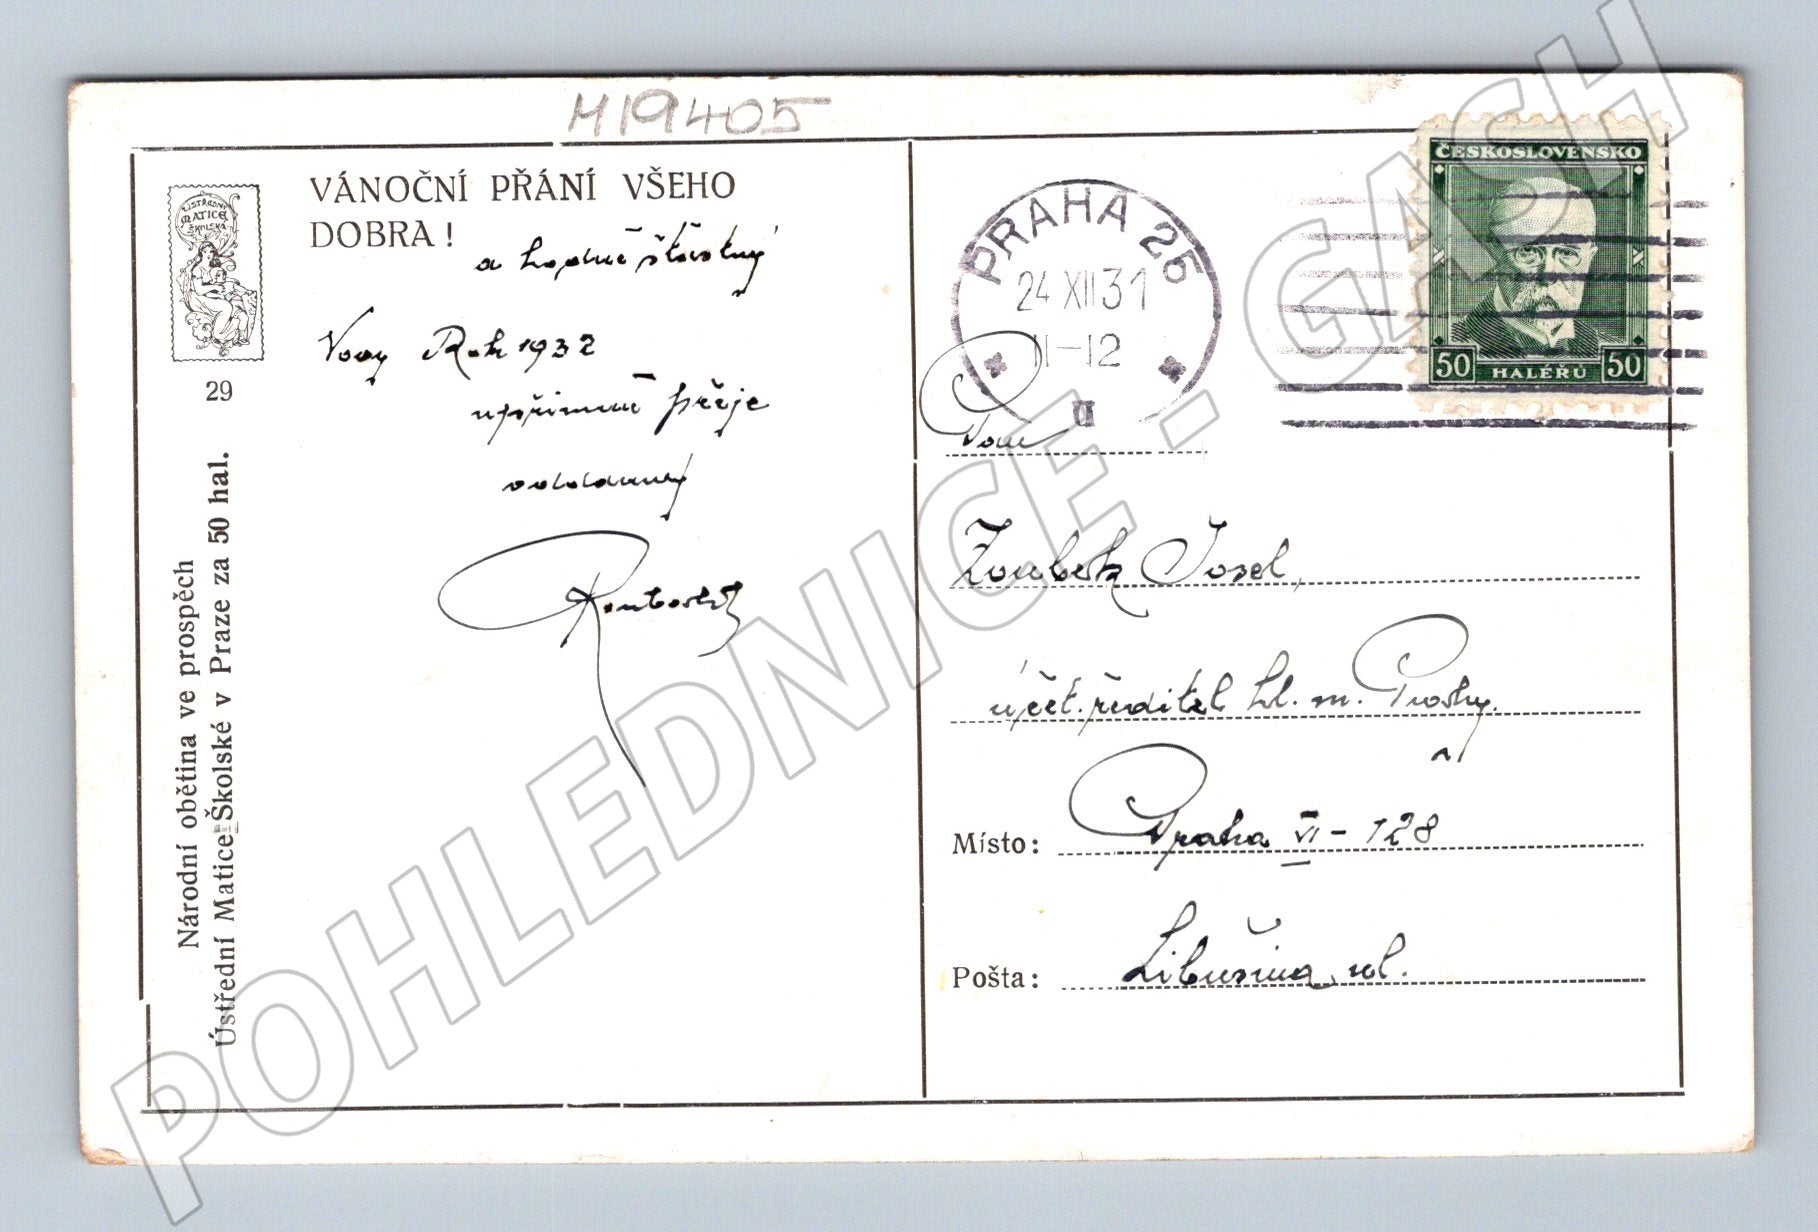 H19405
ÚSTŘEDNÍ
MATICE
ŠKOLSKÁ
29
VÁNOČNÍ PŘÁNÍ VŠEHO
DOBRA!
a hodně šťastný
Nový Rok 1932
upřímně přeje
oddaný
Národní obětina ve prospěch
Ústřední Matice Školské v Praze za 50 hal.
PRAHA 25
24 XII 31
11-12
ČESKOSLOVENSKO
50 HALÉŘŮ 50
Pan
Zoubek Josef,
účet. ředitel hl. m. Prahy.
v
Místo: Praha VI - 128
Pošta: Libušina ul.
POHLEDNICE - GASH